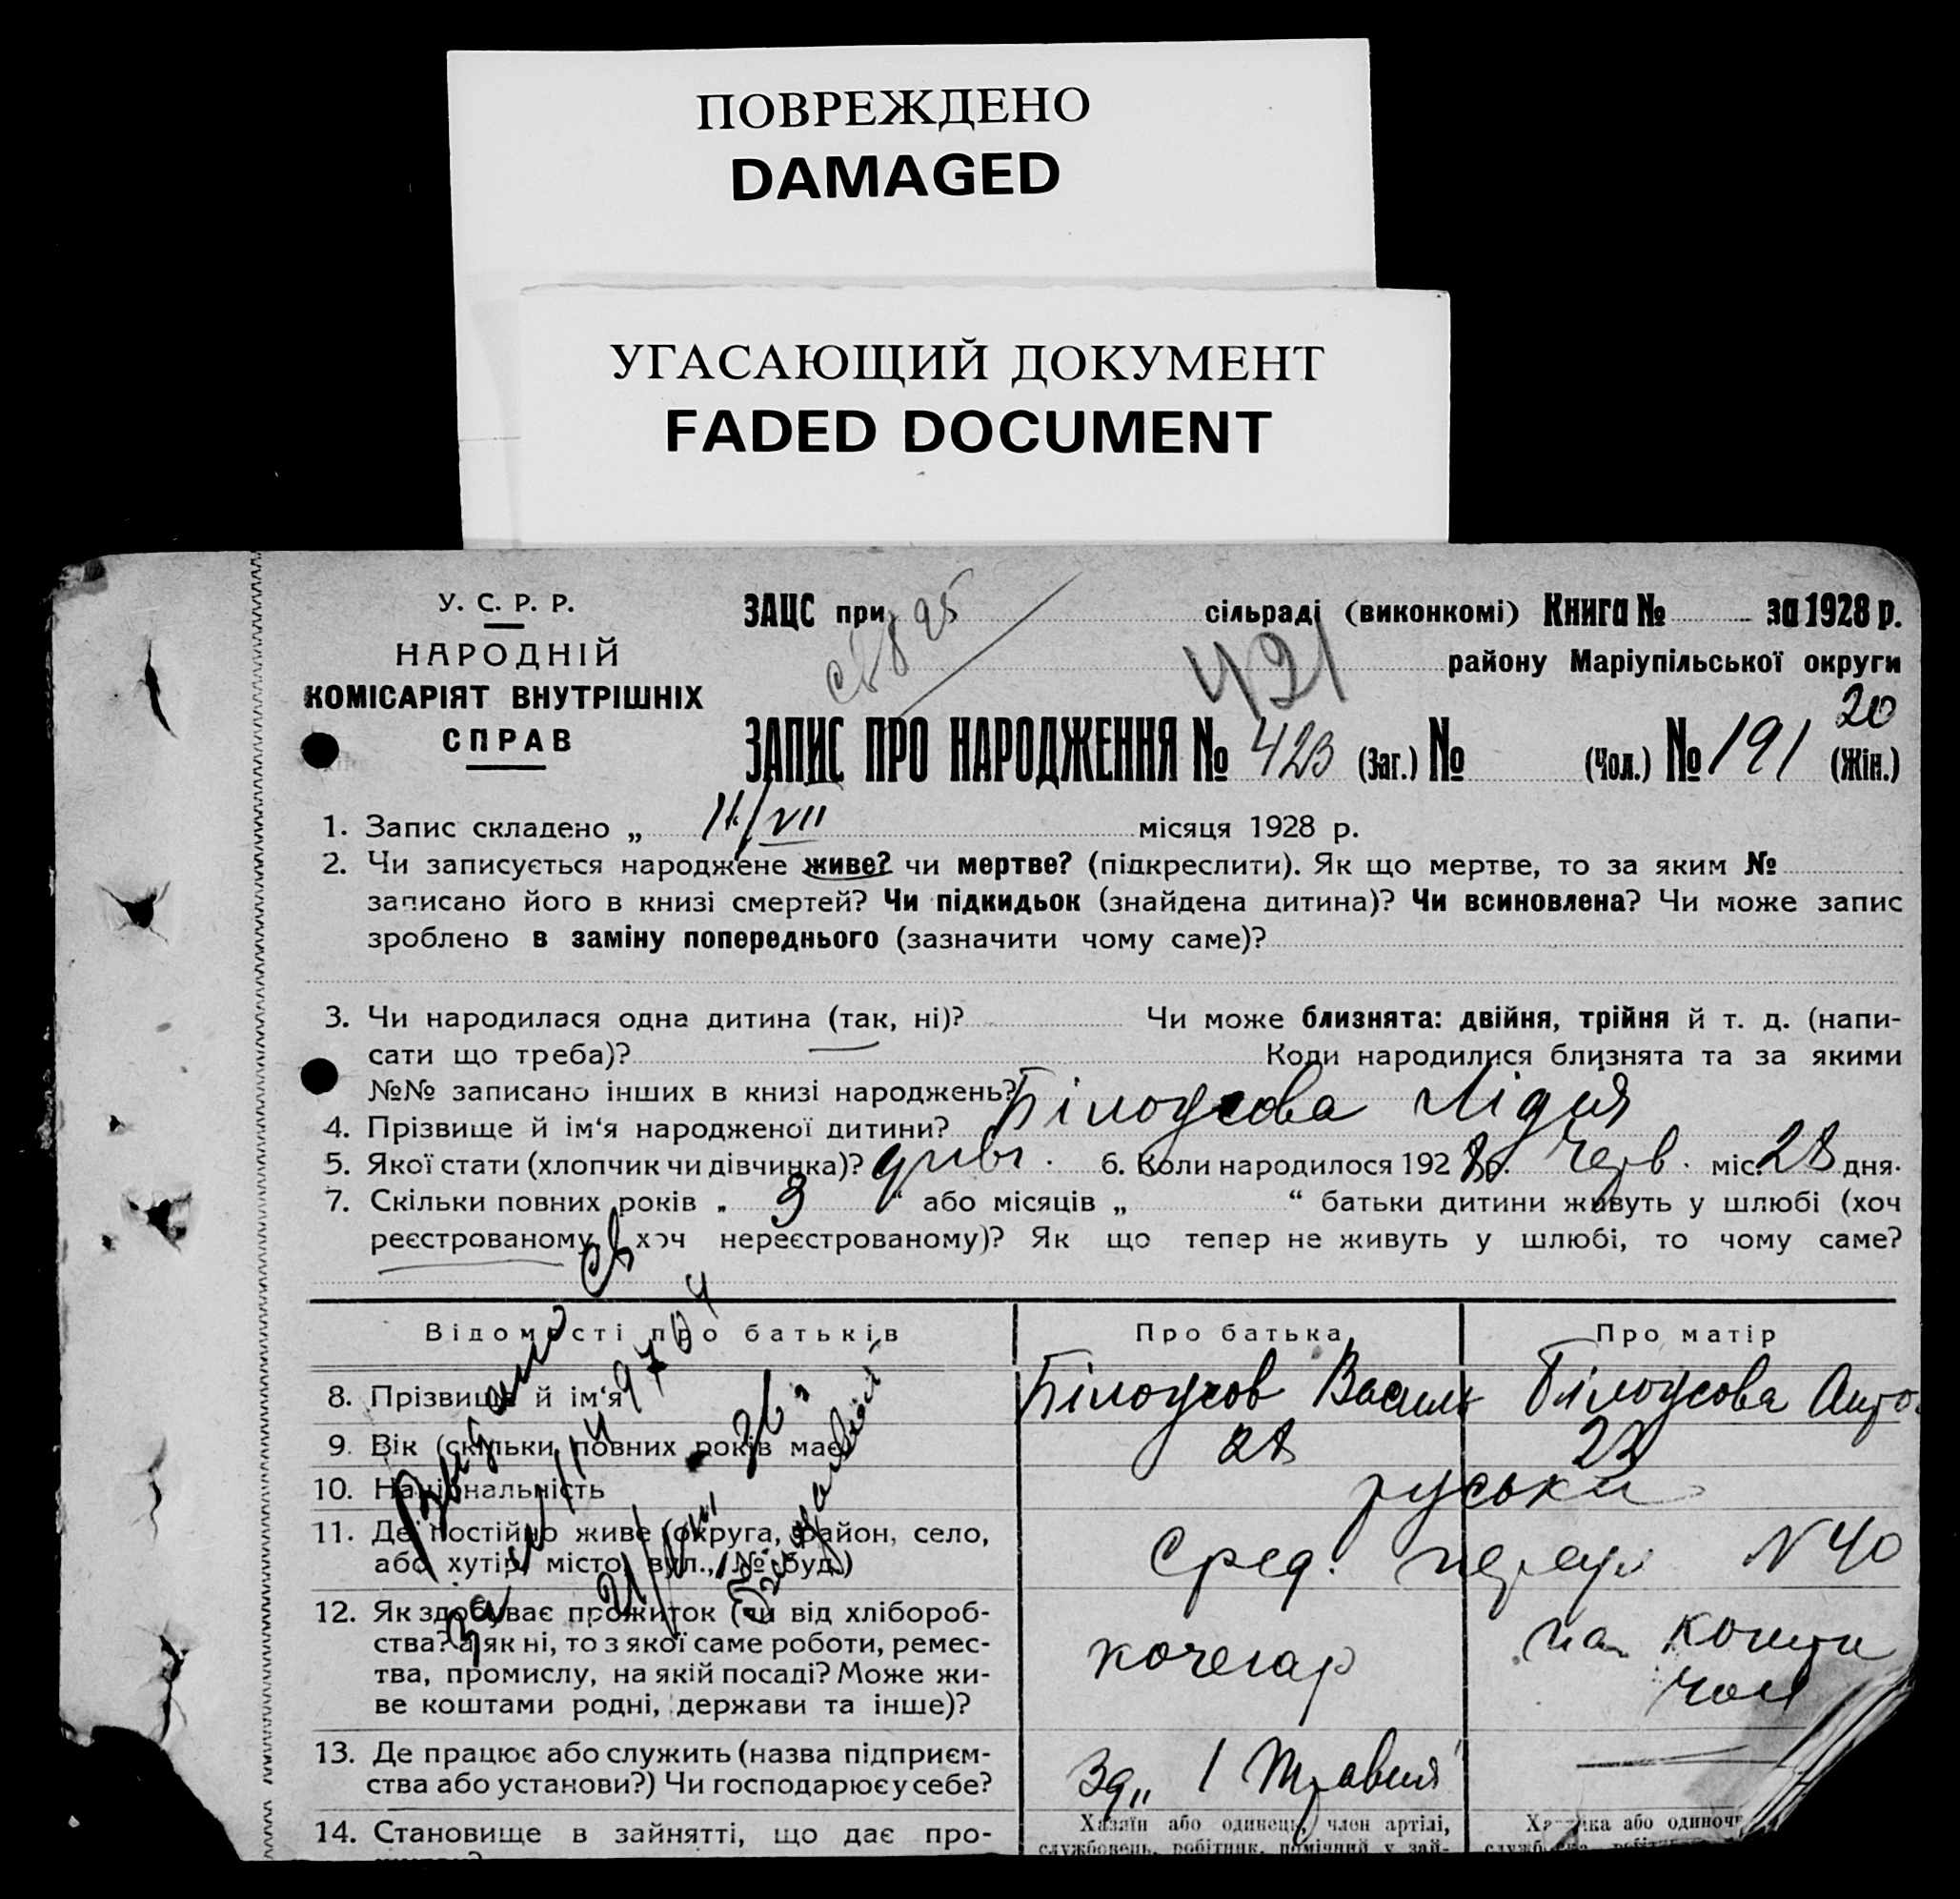 ПОВРЕЖДЕНО
DAMAGED
УГАСАЮЩИЙ ДОКУМЕНТ
FADED DOCUMENT
У. С. Р. Р.
НАРОДНІЙ
КОМІСАРІЯТ ВНУТРІШНІХ
СПРАВ
ЗАЦС при сільраді (виконкомі) Книга № за 1928 р.
421 району Маріупільської округи
20
ЗАПИС ПРО НАРОДЖЕННЯ № 423 (Заг.) № (Чол.) № 191 (Жін.)
1. Запис складено „ 11/VII місяця 1928 р.
2. Чи записується народжене живе? чи мертве? (підкреслити). Як що мертве, то за яким №
записано його в книзі смертей? Чи підкидьок (знайдена дитина)? Чи всиновлена? Чи може запис
зроблено в заміну попереднього (зазначити чому саме)?
3. Чи народилася одна дитина (так, ні)? Чи може близнята: двійня, трійня й т. д. (напи-
сати що треба)? Коли народилися близнята та за якими
№№ записано інших в книзі народжень?
4. Прізвище й ім‘я народженої дитини? Білоусова Лідія
5. Якої стати (хлопчик чи дівчинка)? дівч. 6. Коли народилося 1928 р. Черв. міс. 28 дня.
7. Скільки повних років „ 3 “ або місяців „ “ батьки дитини живуть у шлюбі (хоч
реєстрованому, хоч нереєстрованому)? Як що тепер не живуть у шлюбі, то чому саме?
Відомості про батьків Про батька Про матір
8. Прізвище й ім‘я Білоусов Василь Білоусова
9. Вік (скільки повних років має) 28 22
10. Національність руськи
11. Де постійно живе (округа, район, село, Сред. переул N 40
або хутір, місто, вул., № буд.)
12. Як здобуває прожиток (чи від хлібороб-
ства? а як ні, то з якої саме роботи, ремес- кочегар на кошти
тва, промислу, на якій посаді? Може жи- чол
ве коштами родні, держави та інше)?
13. Де працює або служить (назва підприєм- Зд„ 1 Травня
ства або установи?) Чи господарює у себе?
14. Становище в зайнятті, що дає про-
Хазяїн або одинець, член артілі,
службовець, робітник, помічний у зай-
Видано св
за